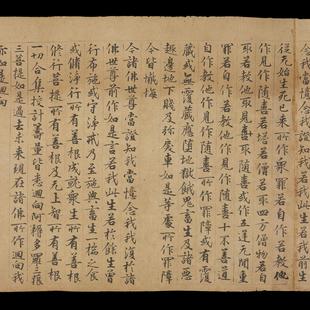 念我當憶念我證知我若我前生
從无始生死已來所作衆罪若自作若教他
作見作隨喜若塔若僧若取四方僧物若自
取若教他取見取隨喜或作五逆无間重
罪若自作若教他作見作隨喜十不善道
自作教他作見作隨喜所作罪障或有覆
藏或无覆藏應墮地獄餓鬼畜生及諸惡
趣邊地下賤及弥戾車如是等處所作罪障
今皆懺悔
今諸佛世尊當證知我當憶念我我復於諸
佛世尊前作如是言若我此生若於餘生曾
行布施或守淨戒乃至施與畜生一揣之食
或脩淨行所有善根成就衆生所有善根
脩行菩提所有善根及无上智所有善根
一切合集校計籌量皆悉迴向阿耨多羅三藐
三菩提如是過去未來現在諸佛所作迴向我
亦如是迴向